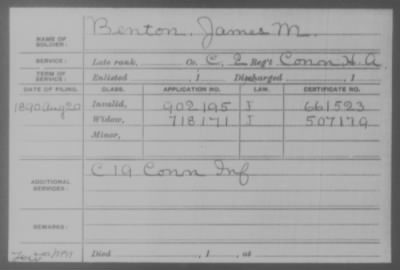 NAME OF SOLDIER: Benton, James M.
SERVICE: Late rank, Co. C, 2 Reg't Conn H.A.
TERM OF SERVICE: Enlisted , 1 Discharged , 1
DATE OF FILING. CLASS. APPLICATION NO. LAW. CERTIFICATE NO.
1890 Aug 20 Invalid, 902195 J 661523
Widow, 718171 J 507179
Minor,
ADDITIONAL SERVICES: C 19 Conn Inf
REMARKS:
Died , 1 , at